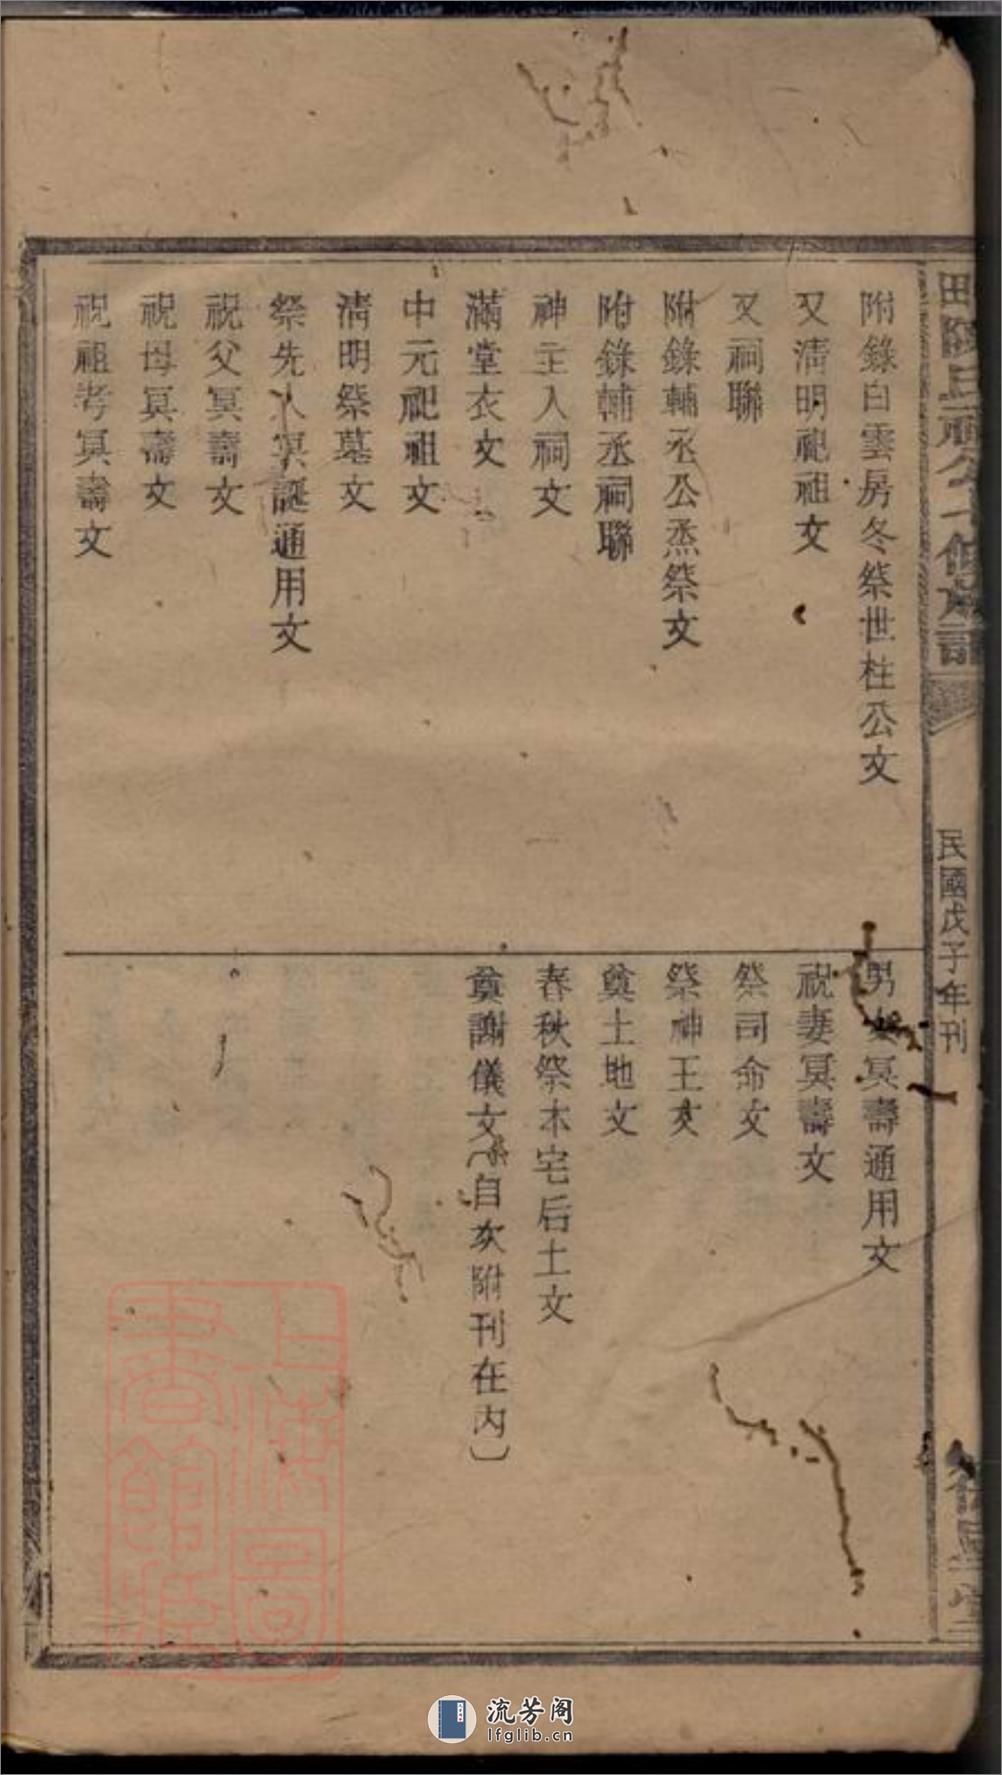 民國戊子年刊
附錄白雲房冬祭世柱公文
又清明祀祖文
又祠聯
附錄輔丞公烝祭文
附錄輔丞祠聯
神主入祠文
滿堂衣文
中元祀祖文
清明祭墓文
祭先人冥誕通用文
祝父冥壽文
祝母冥壽文
祝祖考冥壽文
男女冥壽通用文
祝妻冥壽文
祭司命文
祭神王文
奠土地文
春秋祭本宅后土文
奠謝儀文（自次附刊在內）
上海圖書館藏
流芳阁
lfglib.cn